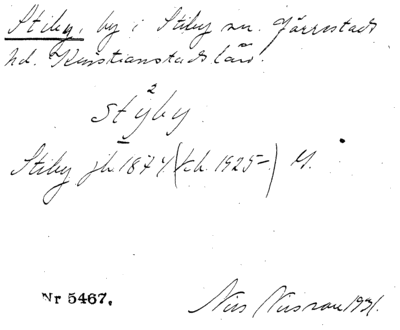 Stiby, by i Stiby sn. Järrestads
hd. Kristianstads län.
2
styby
Stiby jb. 1874 (kb. 1925-) H.
Nr 5467. Nils 1931.